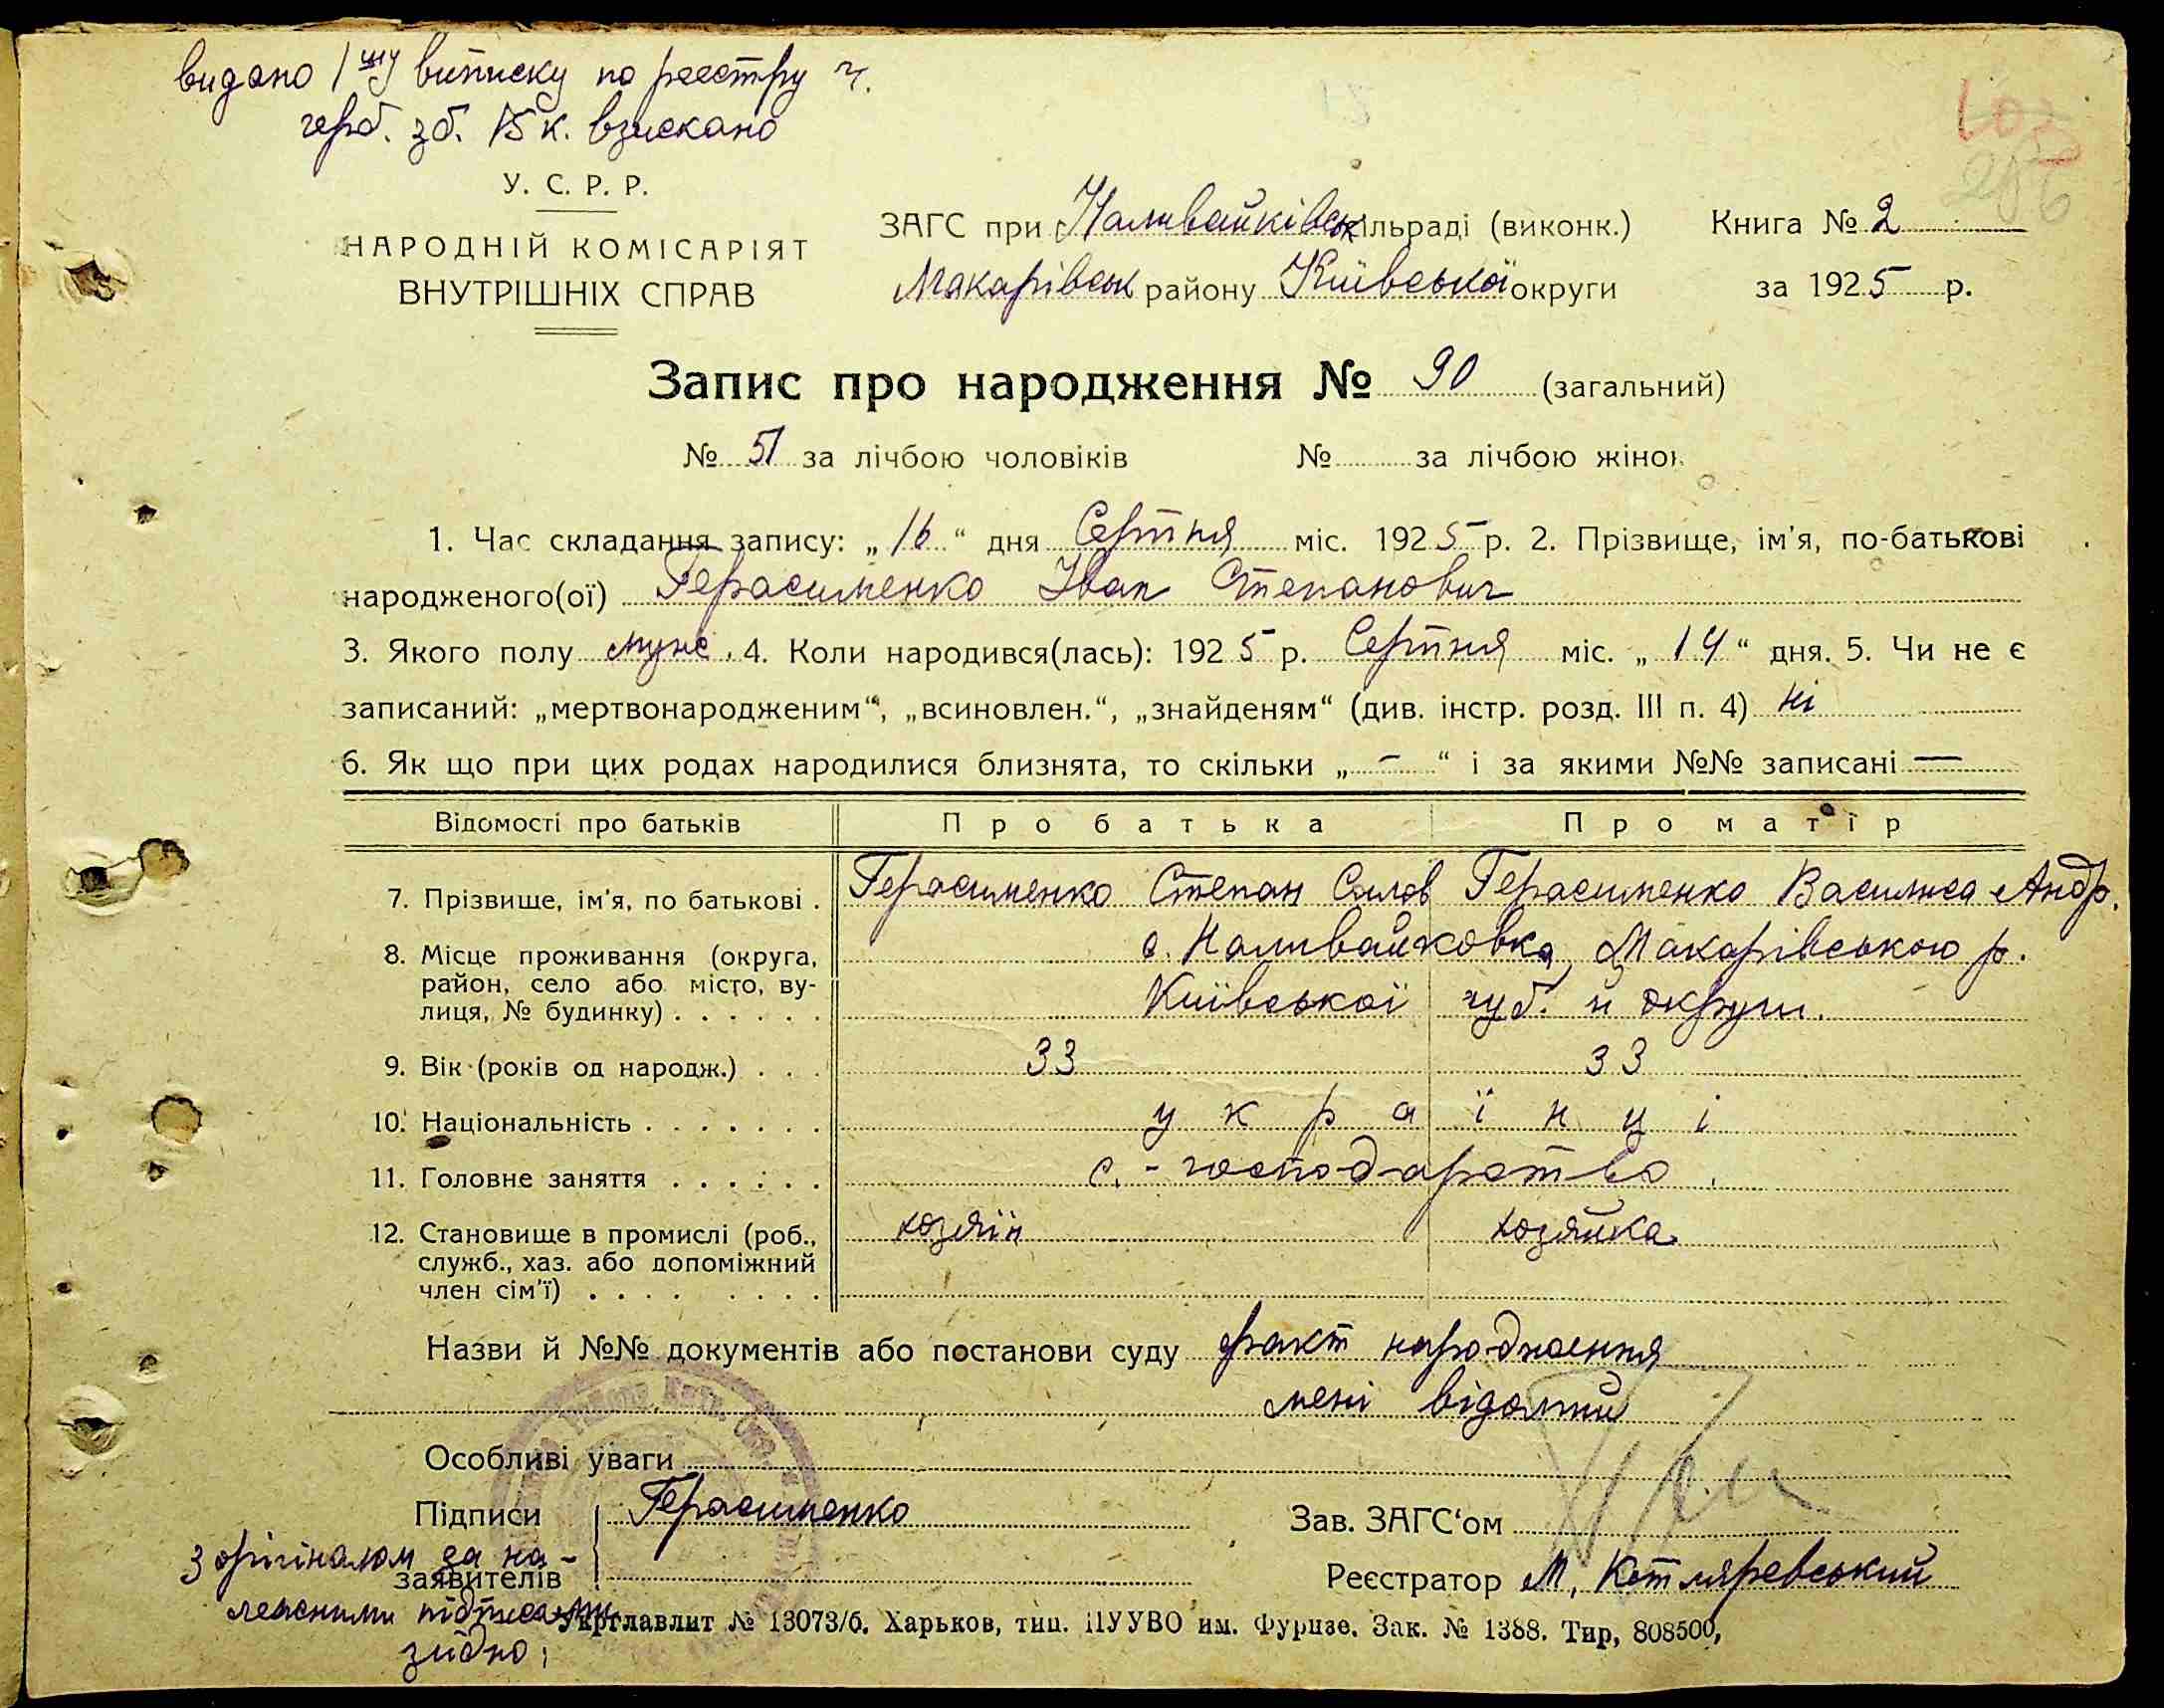 видано 1шу виписку по реєстру ч.
герб. зб. 15 к. взискано
У. С. Р. Р.
НАРОДНІЙ КОМІСАРІЯТ
ВНУТРІШНІХ СПРАВ
ЗАГС при Наливайківськ ільраді (виконк.) Книга № 2
Макарівськ району Київської округи за 1925 р.
Запис про народження № 90 (загальний)
№ 51 за лічбою чоловіків № за лічбою жінок
1. Час складання запису: „16“ дня Серпня міс. 1925 р. 2. Прізвище, ім'я, по-батькові
народженого(ої) Герасименко Іван Степанович
3. Якого полу муж. 4. Коли народився(лась): 1925 р. Серпня міс. „14“ дня. 5. Чи не є
записаний: „мертвонародженим“, „всиновлен.“, „знайденям“ (див. інстр. розд. III п. 4) ні
6. Як що при цих родах народилися близнята, то скільки „ – “ і за якими №№ записані —
Відомості про батьків Про батька Про матір
7. Прізвище, ім'я, по батькові . Герасименко Степан Салов Герасименко Василиса Андр.
8. Місце проживання (округа, с. Наливайковка, Макарівською р.
район, село або місто, ву-
лиця, № будинку) . . . . . . Київської губ. й округи.
9. Вік (років од народж.) . . . 33 33
10. Національність . . . . . . . українці
11. Головне заняття . . . . . . с.-господарство.
12. Становище в промислі (роб., хозяїн хозяйка
служб., хаз. або допоміжний
член сім'ї) . . . . . . . .
Назви й №№ документів або постанови суду факт народження
мені відомий
Особливі уваги
Підписи Герасименко Зав. ЗАГС'ом
заявителів Реєстратор М. Котляревський
З оригіналом за на-
лежними підписами
зідно:
Укрглавлит № 13073/б. Харьков, тип. ПУУВО им. Фрунзе. Зак. № 1388. Тир, 808500,